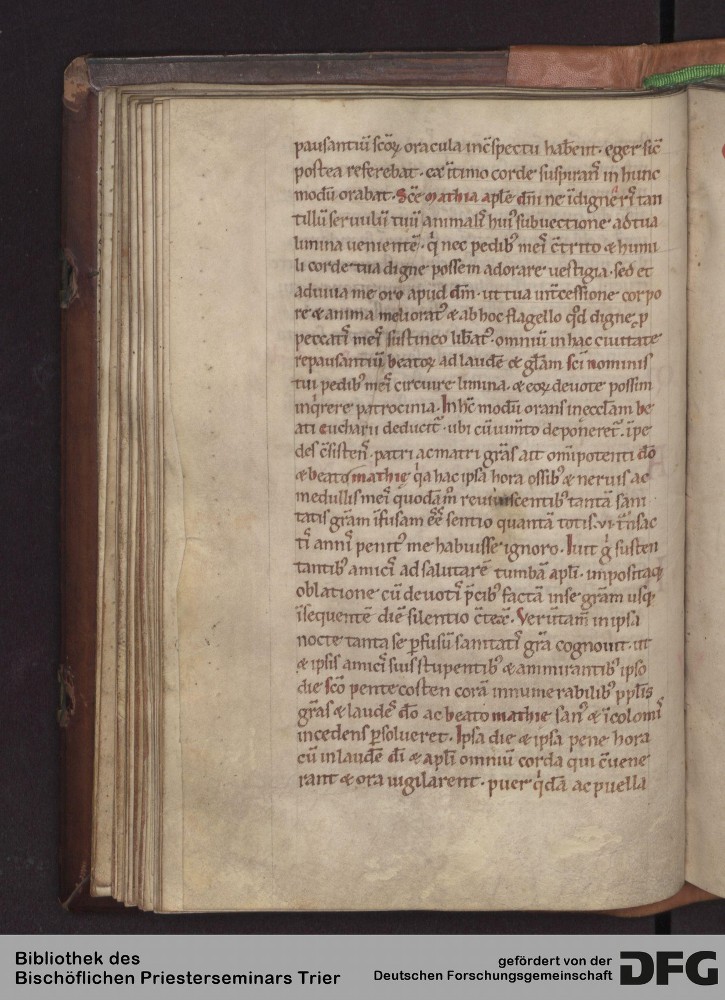 pausantiū scōꝝ oracula inc̄spectu habent· eger sic̄
postea referebat· ex ītimo corde suspirans in hunc
modū orabat· Sc̄e Mathia apl̄e dn̄i ne īdigneris tan
tillū seruulū tuū animalis huiꝰ subuectione ad tua
limina uenientē· qͥ nec pedibꝰ meis c̄trito & humi
li corde tua digne possem adorare uestigia· sed et
adiuua me oro apud dn̄m· ut tua īntcessione corpo
re & anima melioratꝰ & ab hoc flagello qd̄ digne ꝓ
peccatis meis sustineo libatꝰ· omniū in hac ciuitate
repausantiū beatoꝝ ad laudē & gl̄am sc̄i nominis
tui pedibꝰ meis circuire limina· & eoꝝ deuote possim
inqͥrere patrocinia· In hc̄ modū orans in eccl̄am be
ati eucharii deducitꝰ· ubi cū iumto deponeretꝰ· īpe
des c̄sistens· patri ac matri grās ait om̄ipotenti dō
& beato mathię qͥa hac ipsa hora ossibꝰ & neruis ac
medullis meis quodam̄ reuiuiscentibꝰ tantā sani
tatis grām īfusam ēē sentio quantā totis ·vi· t̄nsac
tis annis penitꝰ me habuisse ignoro· Iuit gͦ susten
tantibꝰ amicis ad salutarē tumbā apl̄i· impositaqꝫ
oblatione cū deuotis p̄cibꝰ factā in se grām usqꝫ
īsequentē diē silentio c̄texit· Verūtam̄ in ipsa
nocte tanta se ꝑfusū sanitatis grā cognouit· ut
& ipsis amicis suis stupentibꝰ & ammirantibꝰ ipso
die scō pentecosten corā innumerabilibꝰ ppl̄is
grās & laudes dō ac beato mathie sanꝰ & īcolomis
incedens ꝑsolueret· Ipsa die & ipsa pene hora
cū in laudē dī & apl̄i omniū corda qui c̄uene
rant & ora uigilarent· puer qͥdā ac puella
Bibliothek des
Bischöflichen Priesterseminars Trier
gefördert von der
Deutschen Forschungsgemeinschaft DFG